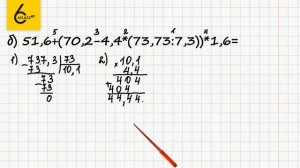 6
КЛАСС
5 3 2 1 4
б) 51,6+(70,2-4,4*(73,73:7,3))*1,6=
1) 2)
-737,3 |73 ×10,1
73 10,1 4,4
-73 404
73 +404
0 44,44.